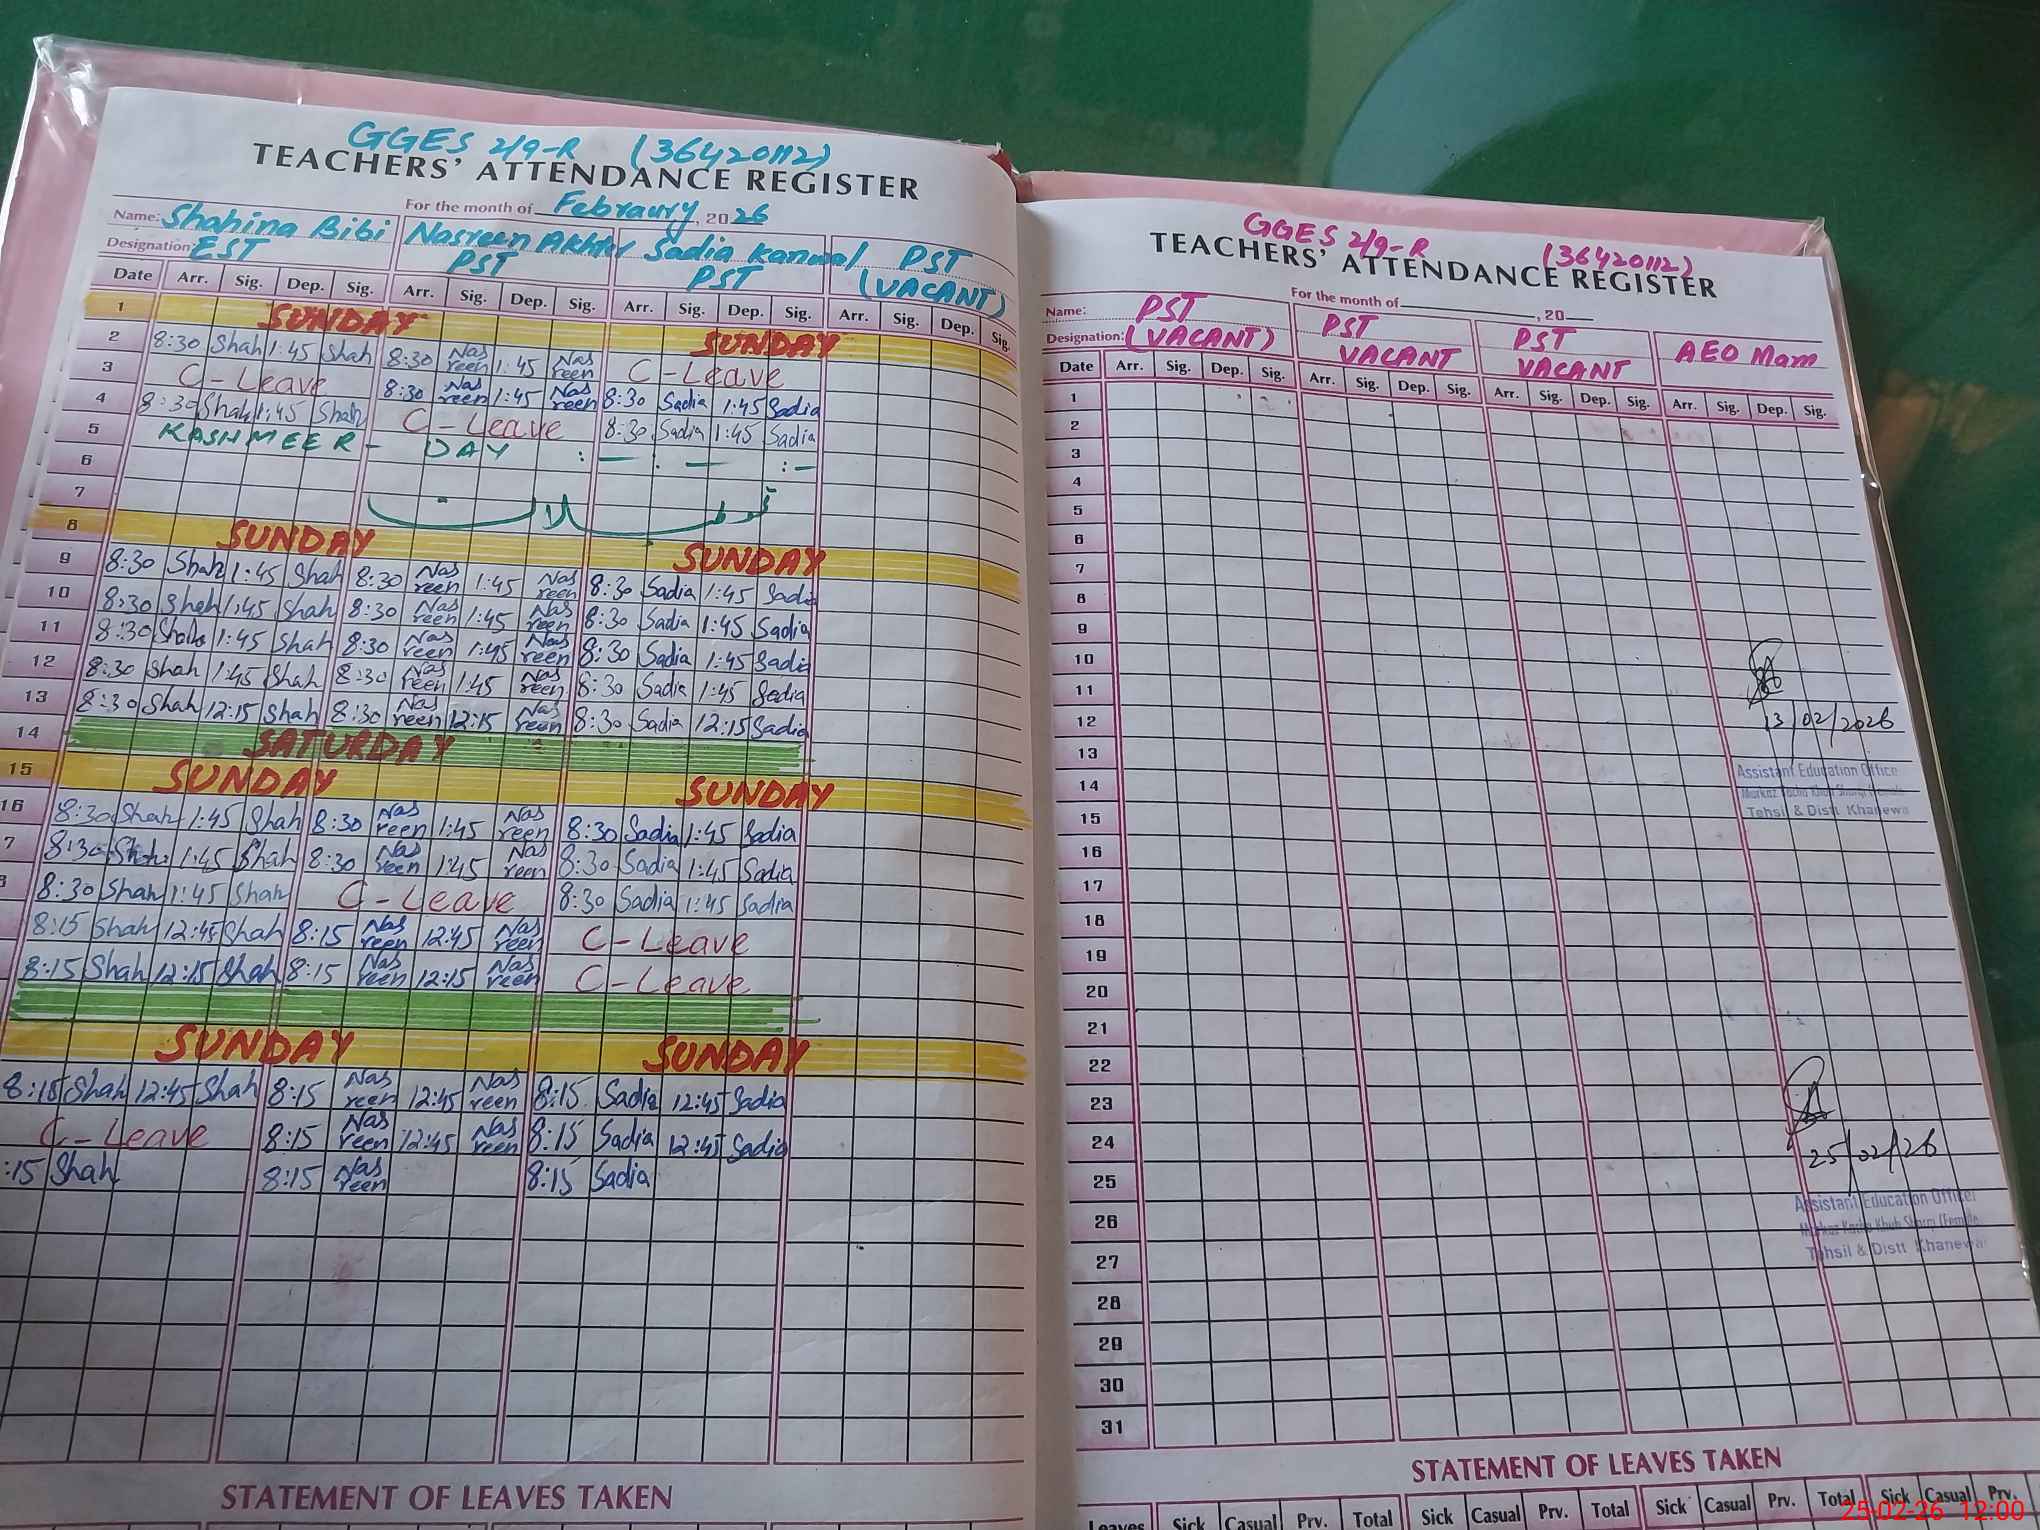 GGES 2/9-R (36420112)
TEACHERS' ATTENDANCE REGISTER
For the month of Febraury, 2026
Name: Shahina Bibi Nasreen Akhter Sadia Kanwal PST
Designation: EST PST PST (VACANT)
Date Arr. Sig. Dep. Sig. Arr. Sig. Dep. Sig. Arr. Sig. Dep. Sig. Arr. Sig. Dep. Sig.
1 SUNDAY SUNDAY
2 8:30 Shah 1:45 Shah 8:30 Nasreen 1:45 Nasreen C-Leave
3 C-Leave 8:30 Nasreen 1:45 Nasreen 8:30 Sadia 1:45 Sadia
4 8:30 Shah 1:45 Shah C-Leave 8:30 Sadia 1:45 Sadia
5 KASHMEER - DAY :- :- :-
6
7
8 SUNDAY SUNDAY
9 8:30 Shah 1:45 Shah 8:30 Nasreen 1:45 Nasreen 8:30 Sadia 1:45 Sadia
10 8:30 Shah 1:45 Shah 8:30 Nasreen 1:45 Nasreen 8:30 Sadia 1:45 Sadia
11 8:30 Shah 1:45 Shah 8:30 Nasreen 1:45 Nasreen 8:30 Sadia 1:45 Sadia
12 8:30 Shah 1:45 Shah 8:30 Nasreen 1:45 Nasreen 8:30 Sadia 1:45 Sadia
13 8:30 Shah 12:15 Shah 8:30 Nasreen 12:15 Nasreen 8:30 Sadia 12:15 Sadia
14 SATURDAY
15 SUNDAY SUNDAY
16 8:30 Shah 1:45 Shah 8:30 Nasreen 1:45 Nasreen 8:30 Sadia 1:45 Sadia
7 8:30 Shah 1:45 Shah 8:30 Nasreen 1:45 Nasreen 8:30 Sadia 1:45 Sadia
8 8:30 Shah 1:45 Shah C-Leave 8:30 Sadia 1:45 Sadia
8:15 Shah 12:45 Shah 8:15 Nasreen 12:45 Nasreen C-Leave
8:15 Shah 12:15 Shah 8:15 Nasreen 12:15 Nasreen C-Leave
SUNDAY SUNDAY
8:15 Shah 12:45 Shah 8:15 Nasreen 12:45 Nasreen 8:15 Sadia 12:45 Sadia
C-Leave 8:15 Nasreen 12:45 Nasreen 8:15 Sadia 12:45 Sadia
:15 Shah 8:15 Nasreen 8:15 Sadia
STATEMENT OF LEAVES TAKEN
GGES 2/9-R (36420112)
TEACHERS' ATTENDANCE REGISTER
For the month of , 20
Name: PST PST PST AEO Mam
Designation: (VACANT) VACANT VACANT
Date Arr. Sig. Dep. Sig. Arr. Sig. Dep. Sig. Arr. Sig. Dep. Sig. Arr. Sig. Dep. Sig.
1
2
3
4
5
6
7
8
9
10
11
12 13/02/2026
13
14 Assistant Education Office
Tehsil & Distt Khanewa
15
16
17
18
19
20
21
22
23
24 25/02/26
25
26 Assistant Education Officer
27 Tehsil & Distt Khanewa
28
29
30
31
STATEMENT OF LEAVES TAKEN
Leaves Sick Casual Prv. Total Sick Casual Prv. Total Sick Casual Prv. Total Sick Casual Prv.
25-02-26 12:00